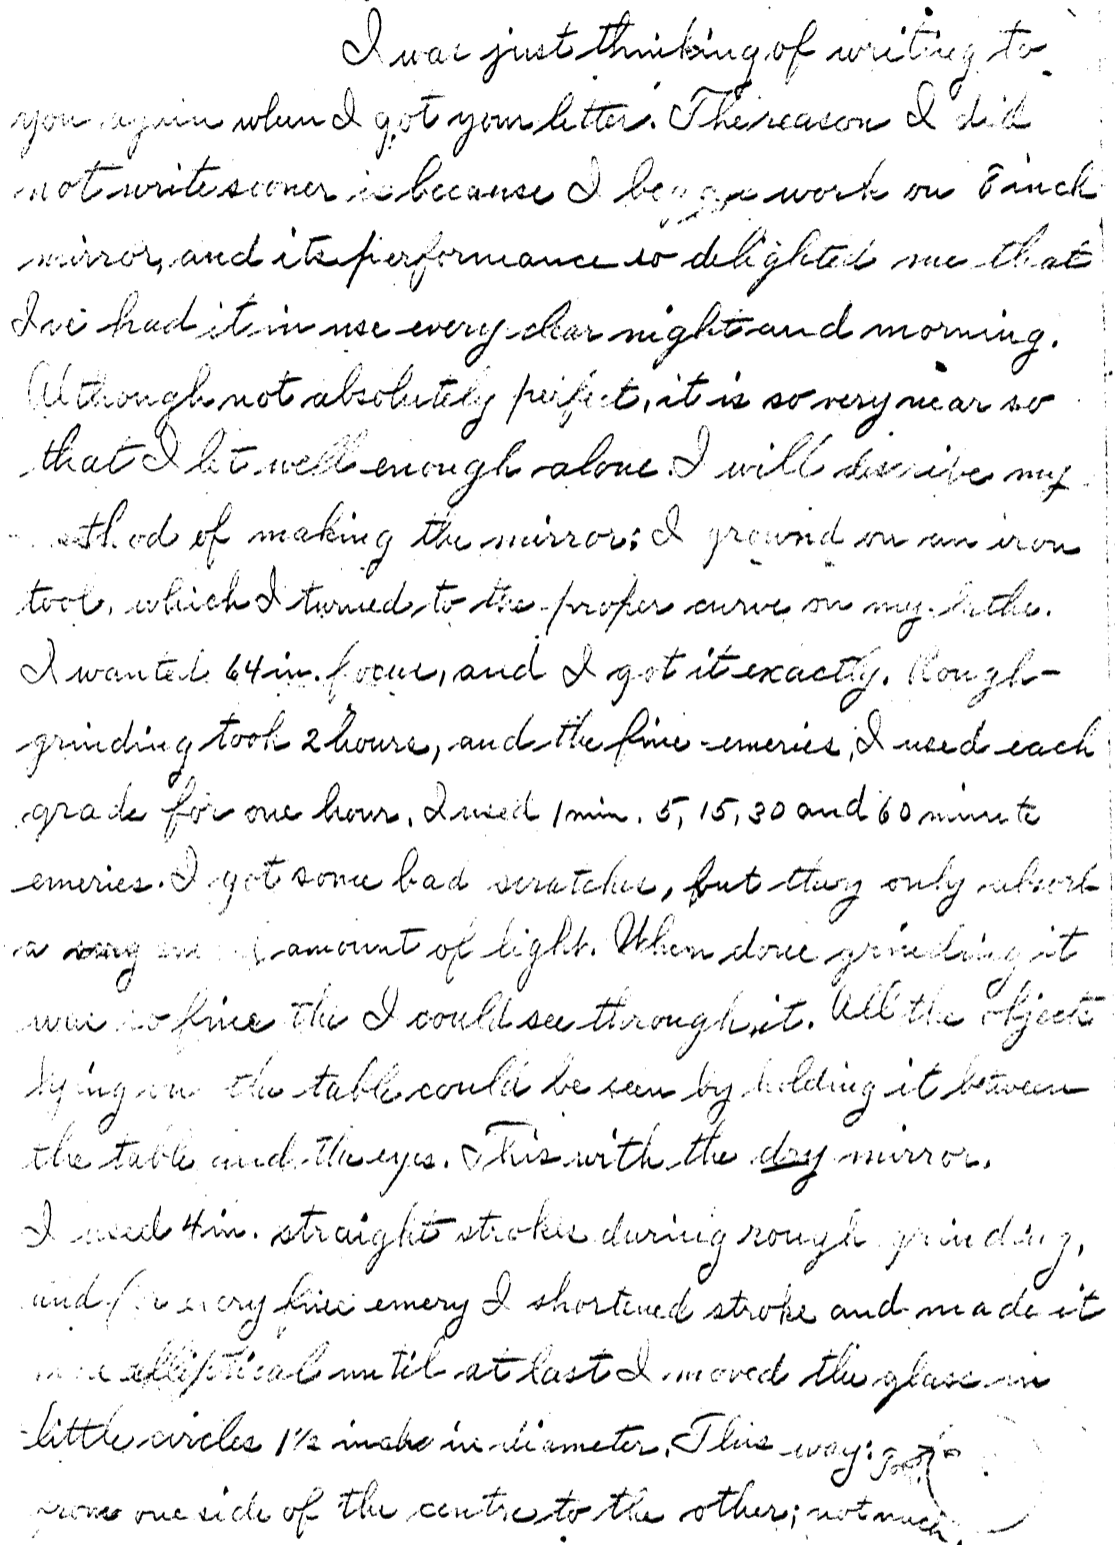 I was just thinking of writing to
you again when I got your letter. The reason I did
not write sooner is because I began work on 8 inch
mirror, and its performance so delighted me that
I've had it in use every clear night and morning.
Although not absolutely perfect, it is so very near so
that I let well enough alone. I will describe my
method of making the mirror: I ground on an iron
tool, which I turned to the proper curve on my lathe.
I wanted 64 in. focus, and I got it exactly. Rough-
grinding took 2 hours, and the fine emeries, I used each
grade for one hour. I used 1 min. 5, 15, 30 and 60 minute
emeries. I got some bad scratches, but they only absorb
a very small amount of light. When done grinding it
was so fine the I could see through it. All the objects
lying on the table could be seen by holding it between
the table and the eyes. This with the dry mirror.
I used 4 in. straight strokes during rough grinding,
and for every fine emery I shortened stroke and made it
more elliptical until at last I moved the glass in
little circles 1½ inches in diameter. This way:
from one side of the centre to the other; not much